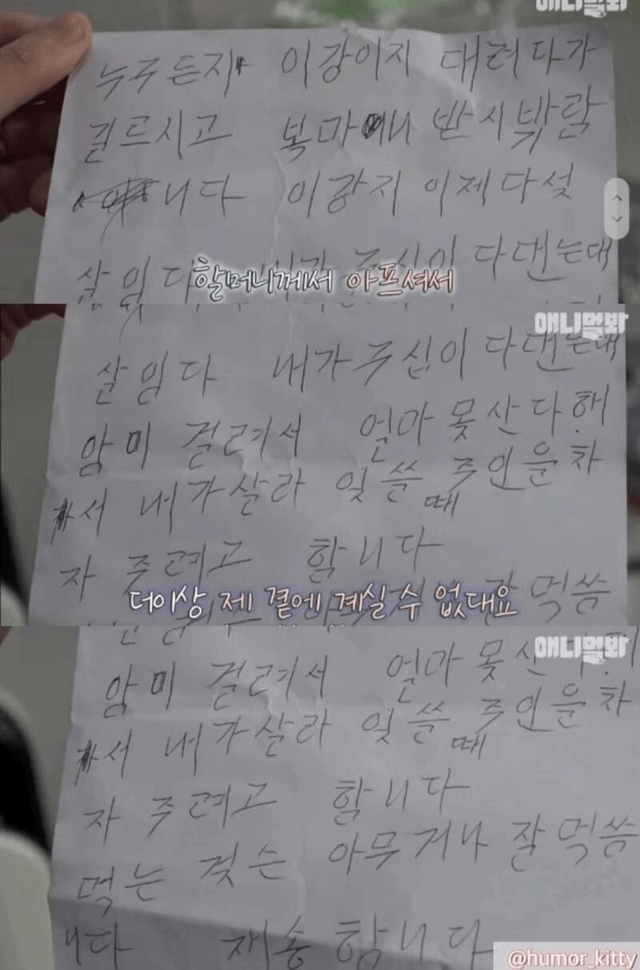 애니멀봐
누구든지 이강이지 대려다가
길르시고 복마니 반시밖랍
니다 이강지 이제다섯
살임다 내가주십이 다댄는대
할머니께서 아프셔서
애니멀봐
살임다 내가주십이 다댄는대
암미 걸려서 언마못산다해
서 내가살라 잇쓸때 주인을차
자 주려고 합니다
더이상 제 곁에 계실 수 없대요
잘먹씀
애니멀봐
암미 걸려서 언마못산다해
서 내가살라 잇쓸때 주인을차
자 주려고 합니다
먹는 것슨 아무거나 잘먹씀
니다 재송합니다
@humor_kitty